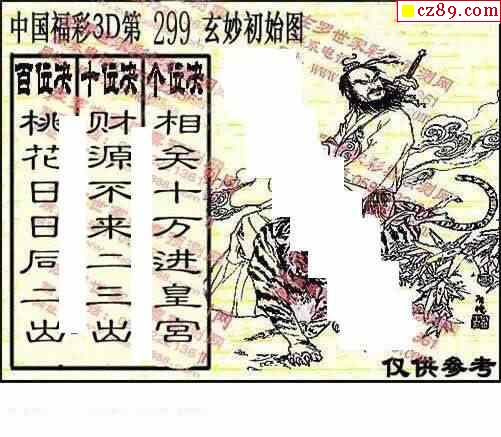 cz89.com
中国福彩3D第 299 玄妙初始图
百位决 十位决 个位决
桃花日日同二出
财源不来二三出
相关十万进皇宫
仅供参考